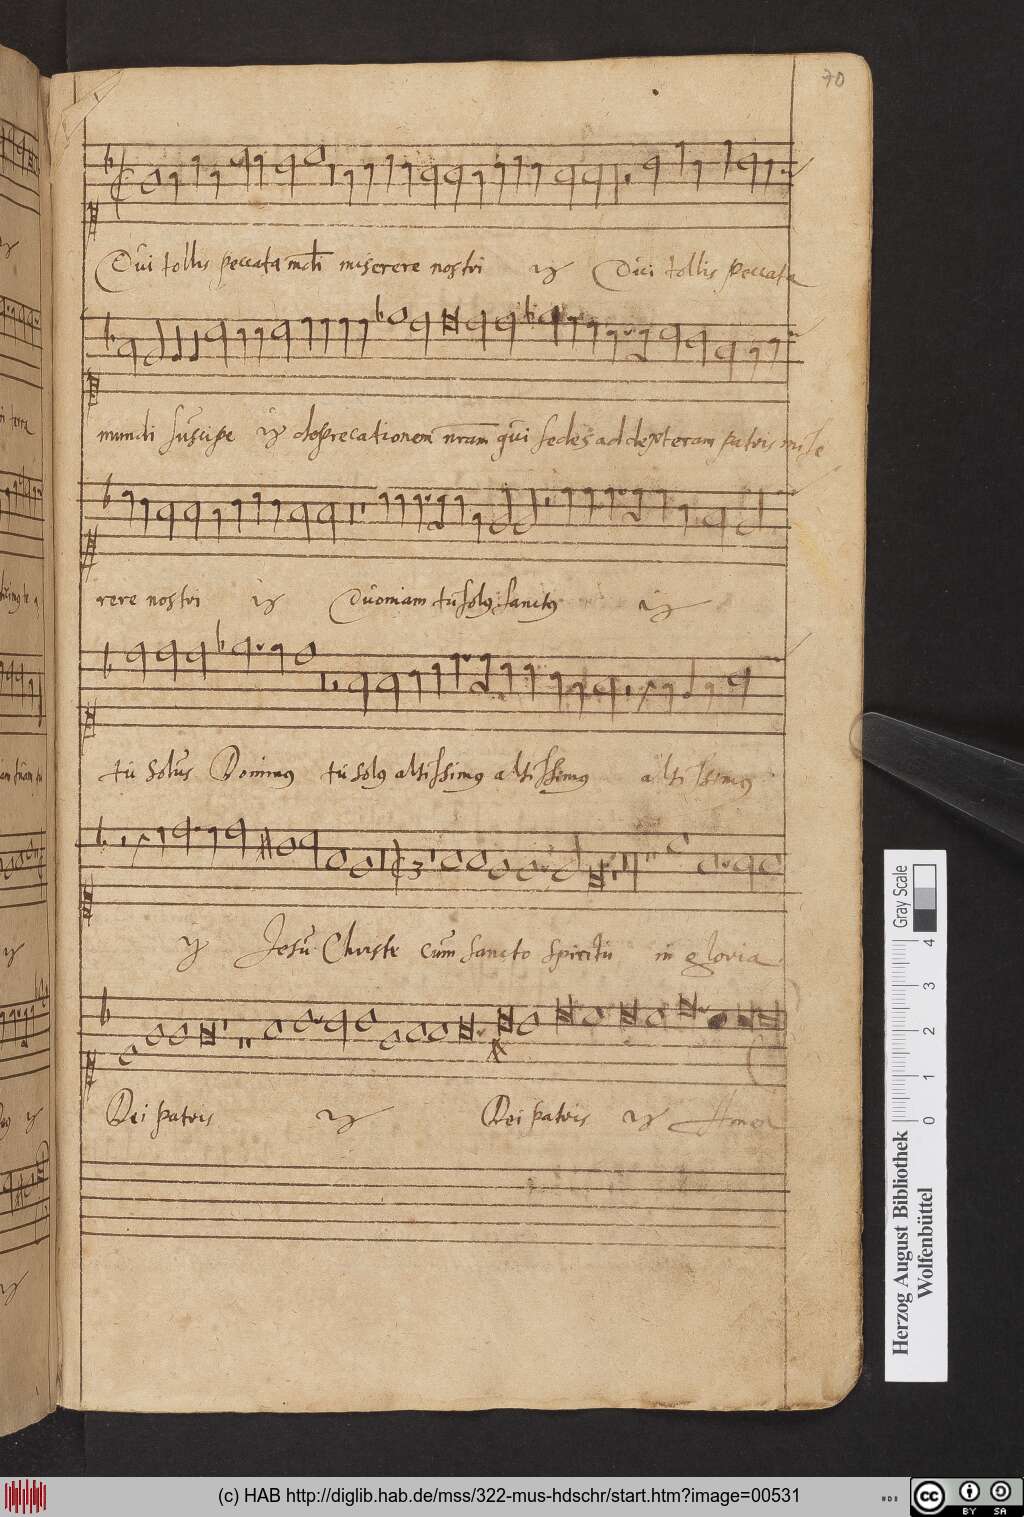 70
Qui tollis peccata mdi miserere nostri ij Qui tollis peccata
mundi suscipe ij deprecationem nram qui sedes ad dexteram patris mise
rere nostri ij Quoniam tu solus sanctus ij
tu solus Dominus tu solus altissimus altissimus altissimus
ij Jesu Christe cum sancto spiritu in gloria
Dei patris ij Dei patris ij Amen
Gray Scale
0 1 2 3 4
Herzog August Bibliothek
Wolfenbüttel
(c) HAB http://diglib.hab.de/mss/322-mus-hdschr/start.htm?image=00531
cc BY SA